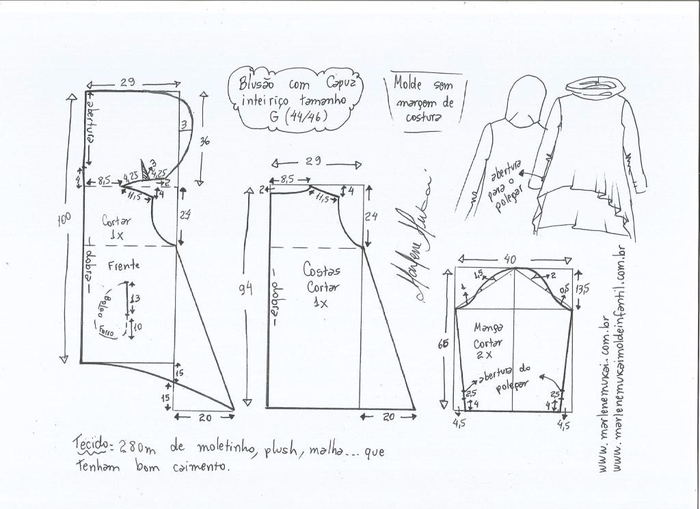 Blusão com Capuz
inteiriço tamanho
G (44/46)
Molde sem
margem de
costura
29
abertura
3
36
100
3
4,25
4,25
8,5
2
11,5
4
24
Cortar
1X
dobra
Frente
Bolso
Forro
13
10
15
15
20
29
2
8,5
4
11,5
24
94
dobra
Costas
Cortar
1X
20
Marlene Mukai
abertura
para o
polegar
40
1,5
2
1
0,5
13,5
65
Manga
Cortar
2X
abertura do
polegar
2,5
4
2,5
4
4,5
4,5
www.marlenemukai.com.br
www.marlenemukaimoldeinfantil.com.br
Tecido: 280m de moletinho, plush, malha... que
tenham bom caimento.